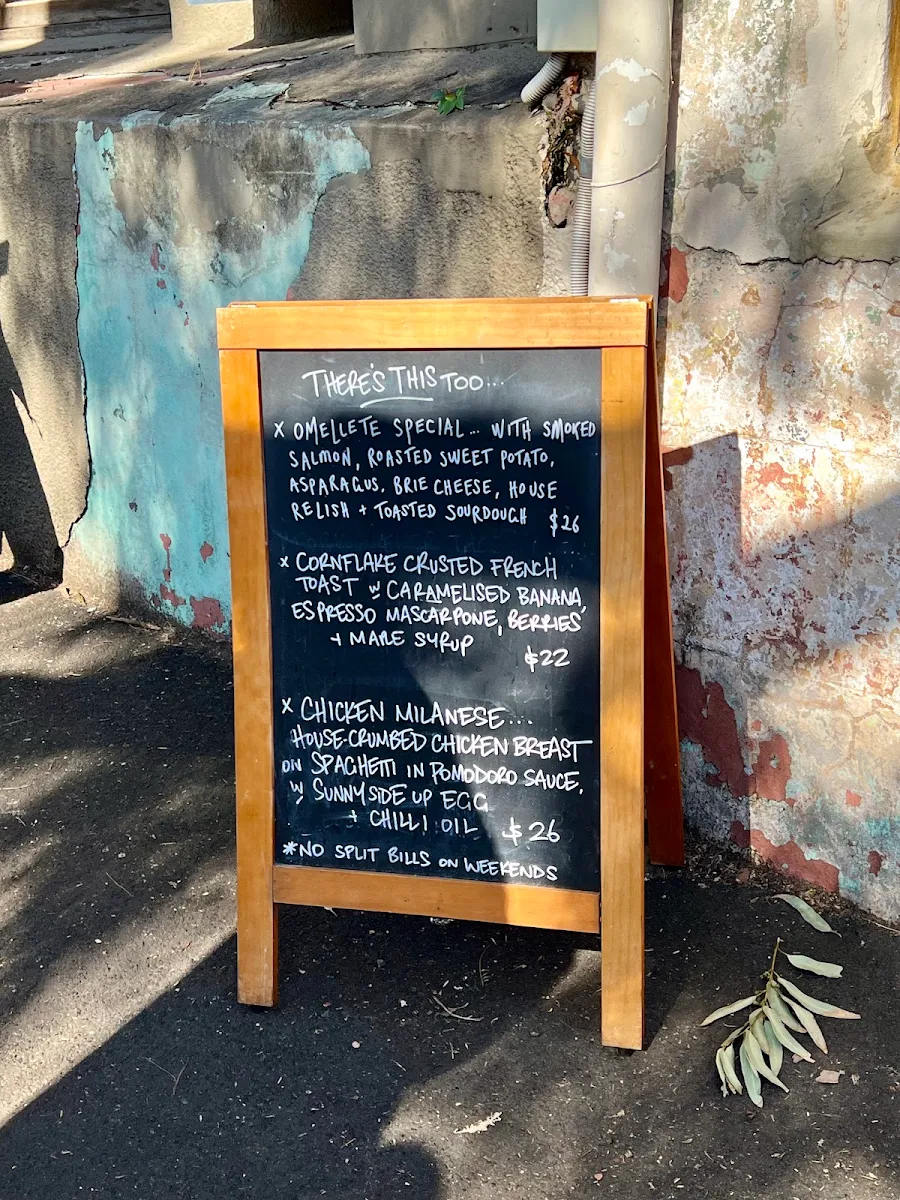 THERE'S THIS TOO...
x OMELLETE SPECIAL... WITH SMOKED
SALMON, ROASTED SWEET POTATO,
ASPARAGUS, BRIE CHEESE, HOUSE
RELISH + TOASTED SOURDOUGH $26
x CORNFLAKE CRUSTED FRENCH
TOAST w CARAMELISED BANANA,
ESPRESSO MASCARPONE, BERRIES
+ MAPLE SYRUP
$22
x CHICKEN MILANESE...
HOUSE-CRUMBED CHICKEN BREAST
ON SPAGHETTI IN POMODORO SAUCE,
w SUNNY SIDE UP EGG
+ CHILLI OIL $26
*NO SPLIT BILLS ON WEEKENDS